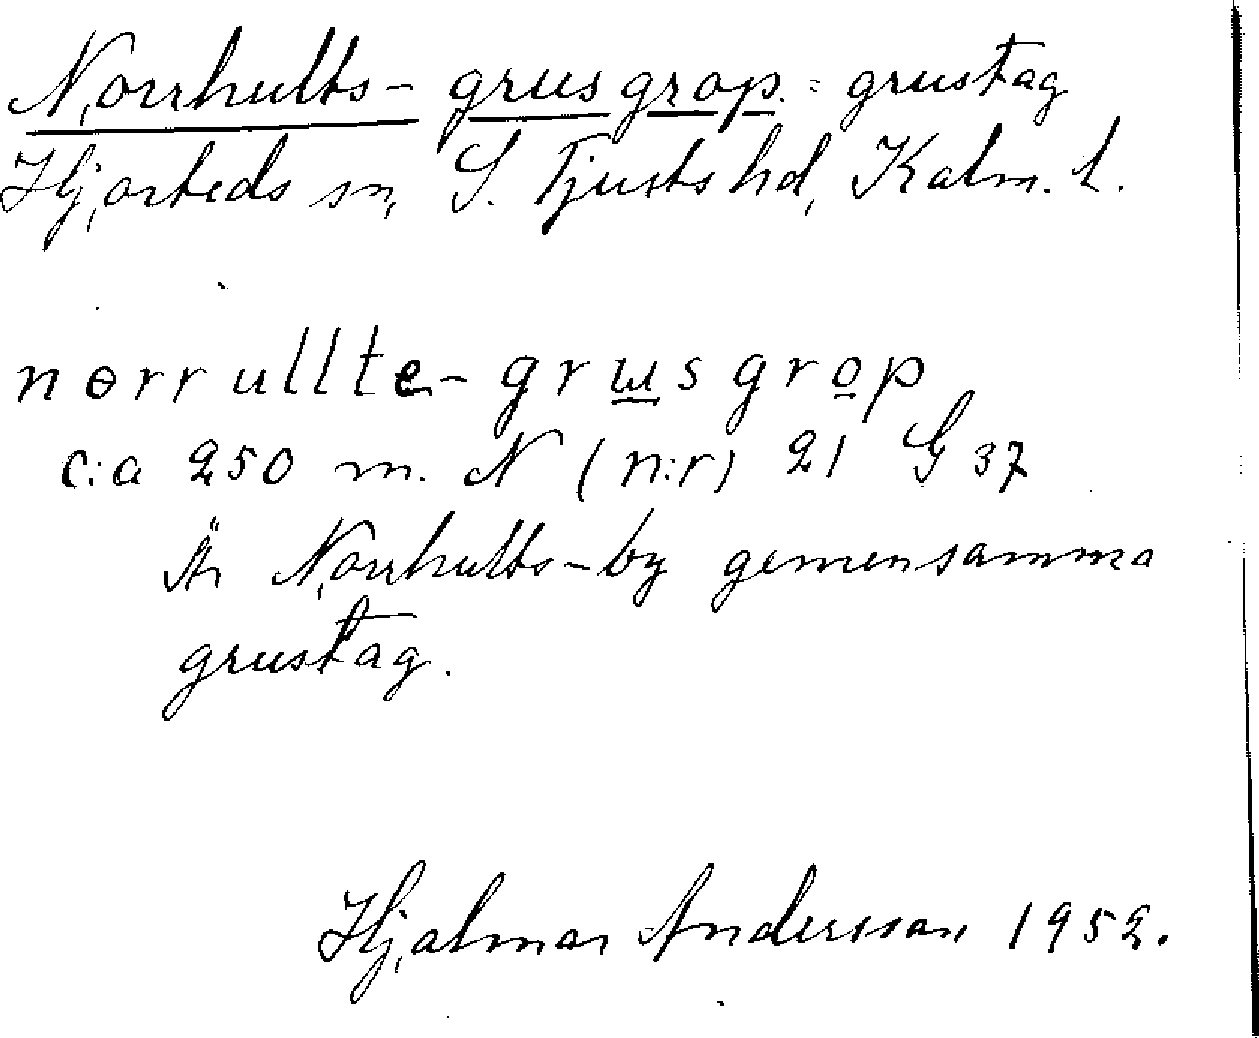 Norrhults-grusgrop. = grustag
Hjorteds sn, S. Tjusts hd, Kalm. l.
nɵrrullte-grusgrop
c:a 250 m. N (n:r) 21 G 37
Är Norrhults-by gemensamma
grustag.
Hjalmar Andersson 1952.